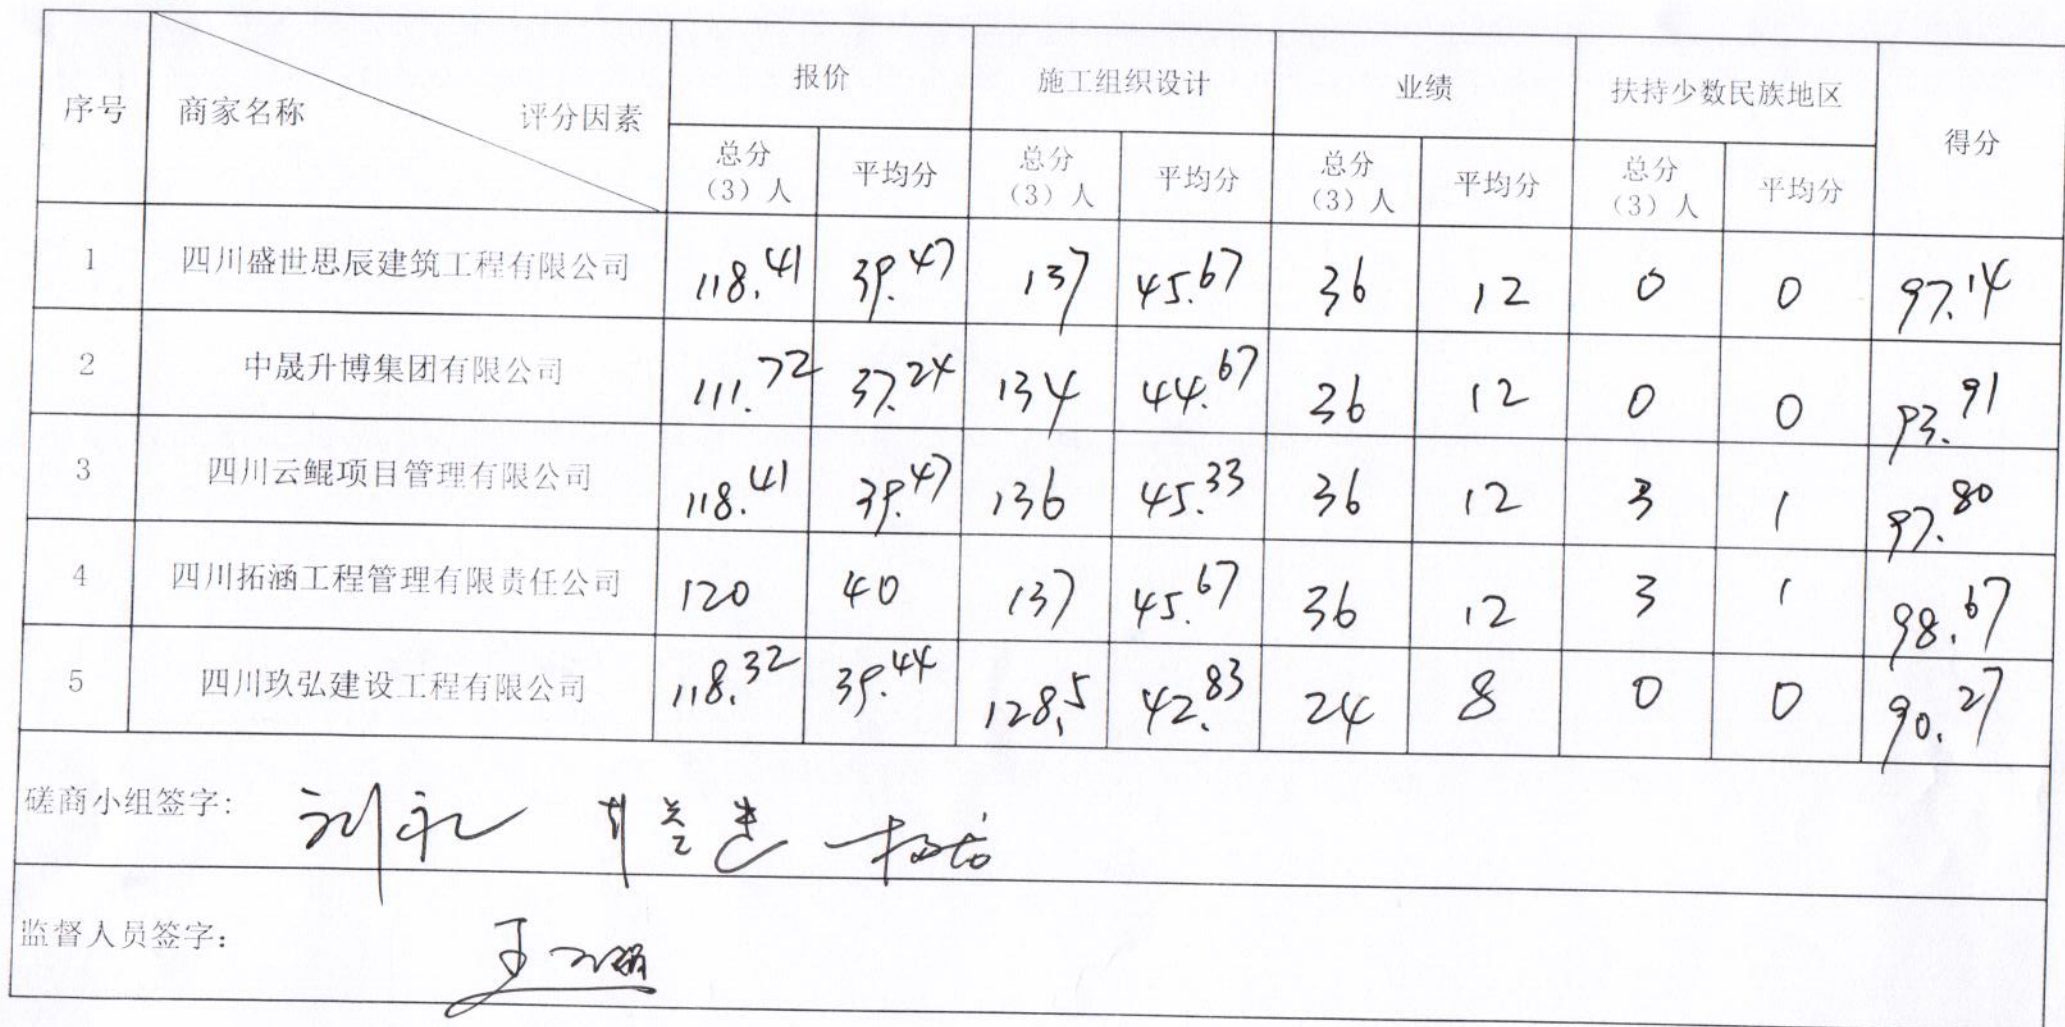 序号 商家名称 评分因素 报价 施工组织设计 业绩 扶持少数民族地区 得分
总分（3）人 平均分 总分（3）人 平均分 总分（3）人 平均分 总分（3）人 平均分
1 四川盛世思辰建筑工程有限公司 118.41 39.47 137 45.67 36 12 0 0 97.14
2 中晟升博集团有限公司 111.72 37.24 134 44.67 36 12 0 0 93.91
3 四川云鲲项目管理有限公司 118.41 39.47 136 45.33 36 12 3 1 97.80
4 四川拓涵工程管理有限责任公司 120 40 137 45.67 36 12 3 1 98.67
5 四川玖弘建设工程有限公司 118.32 39.44 128.5 42.83 24 8 0 0 90.27
磋商小组签字:
监督人员签字: